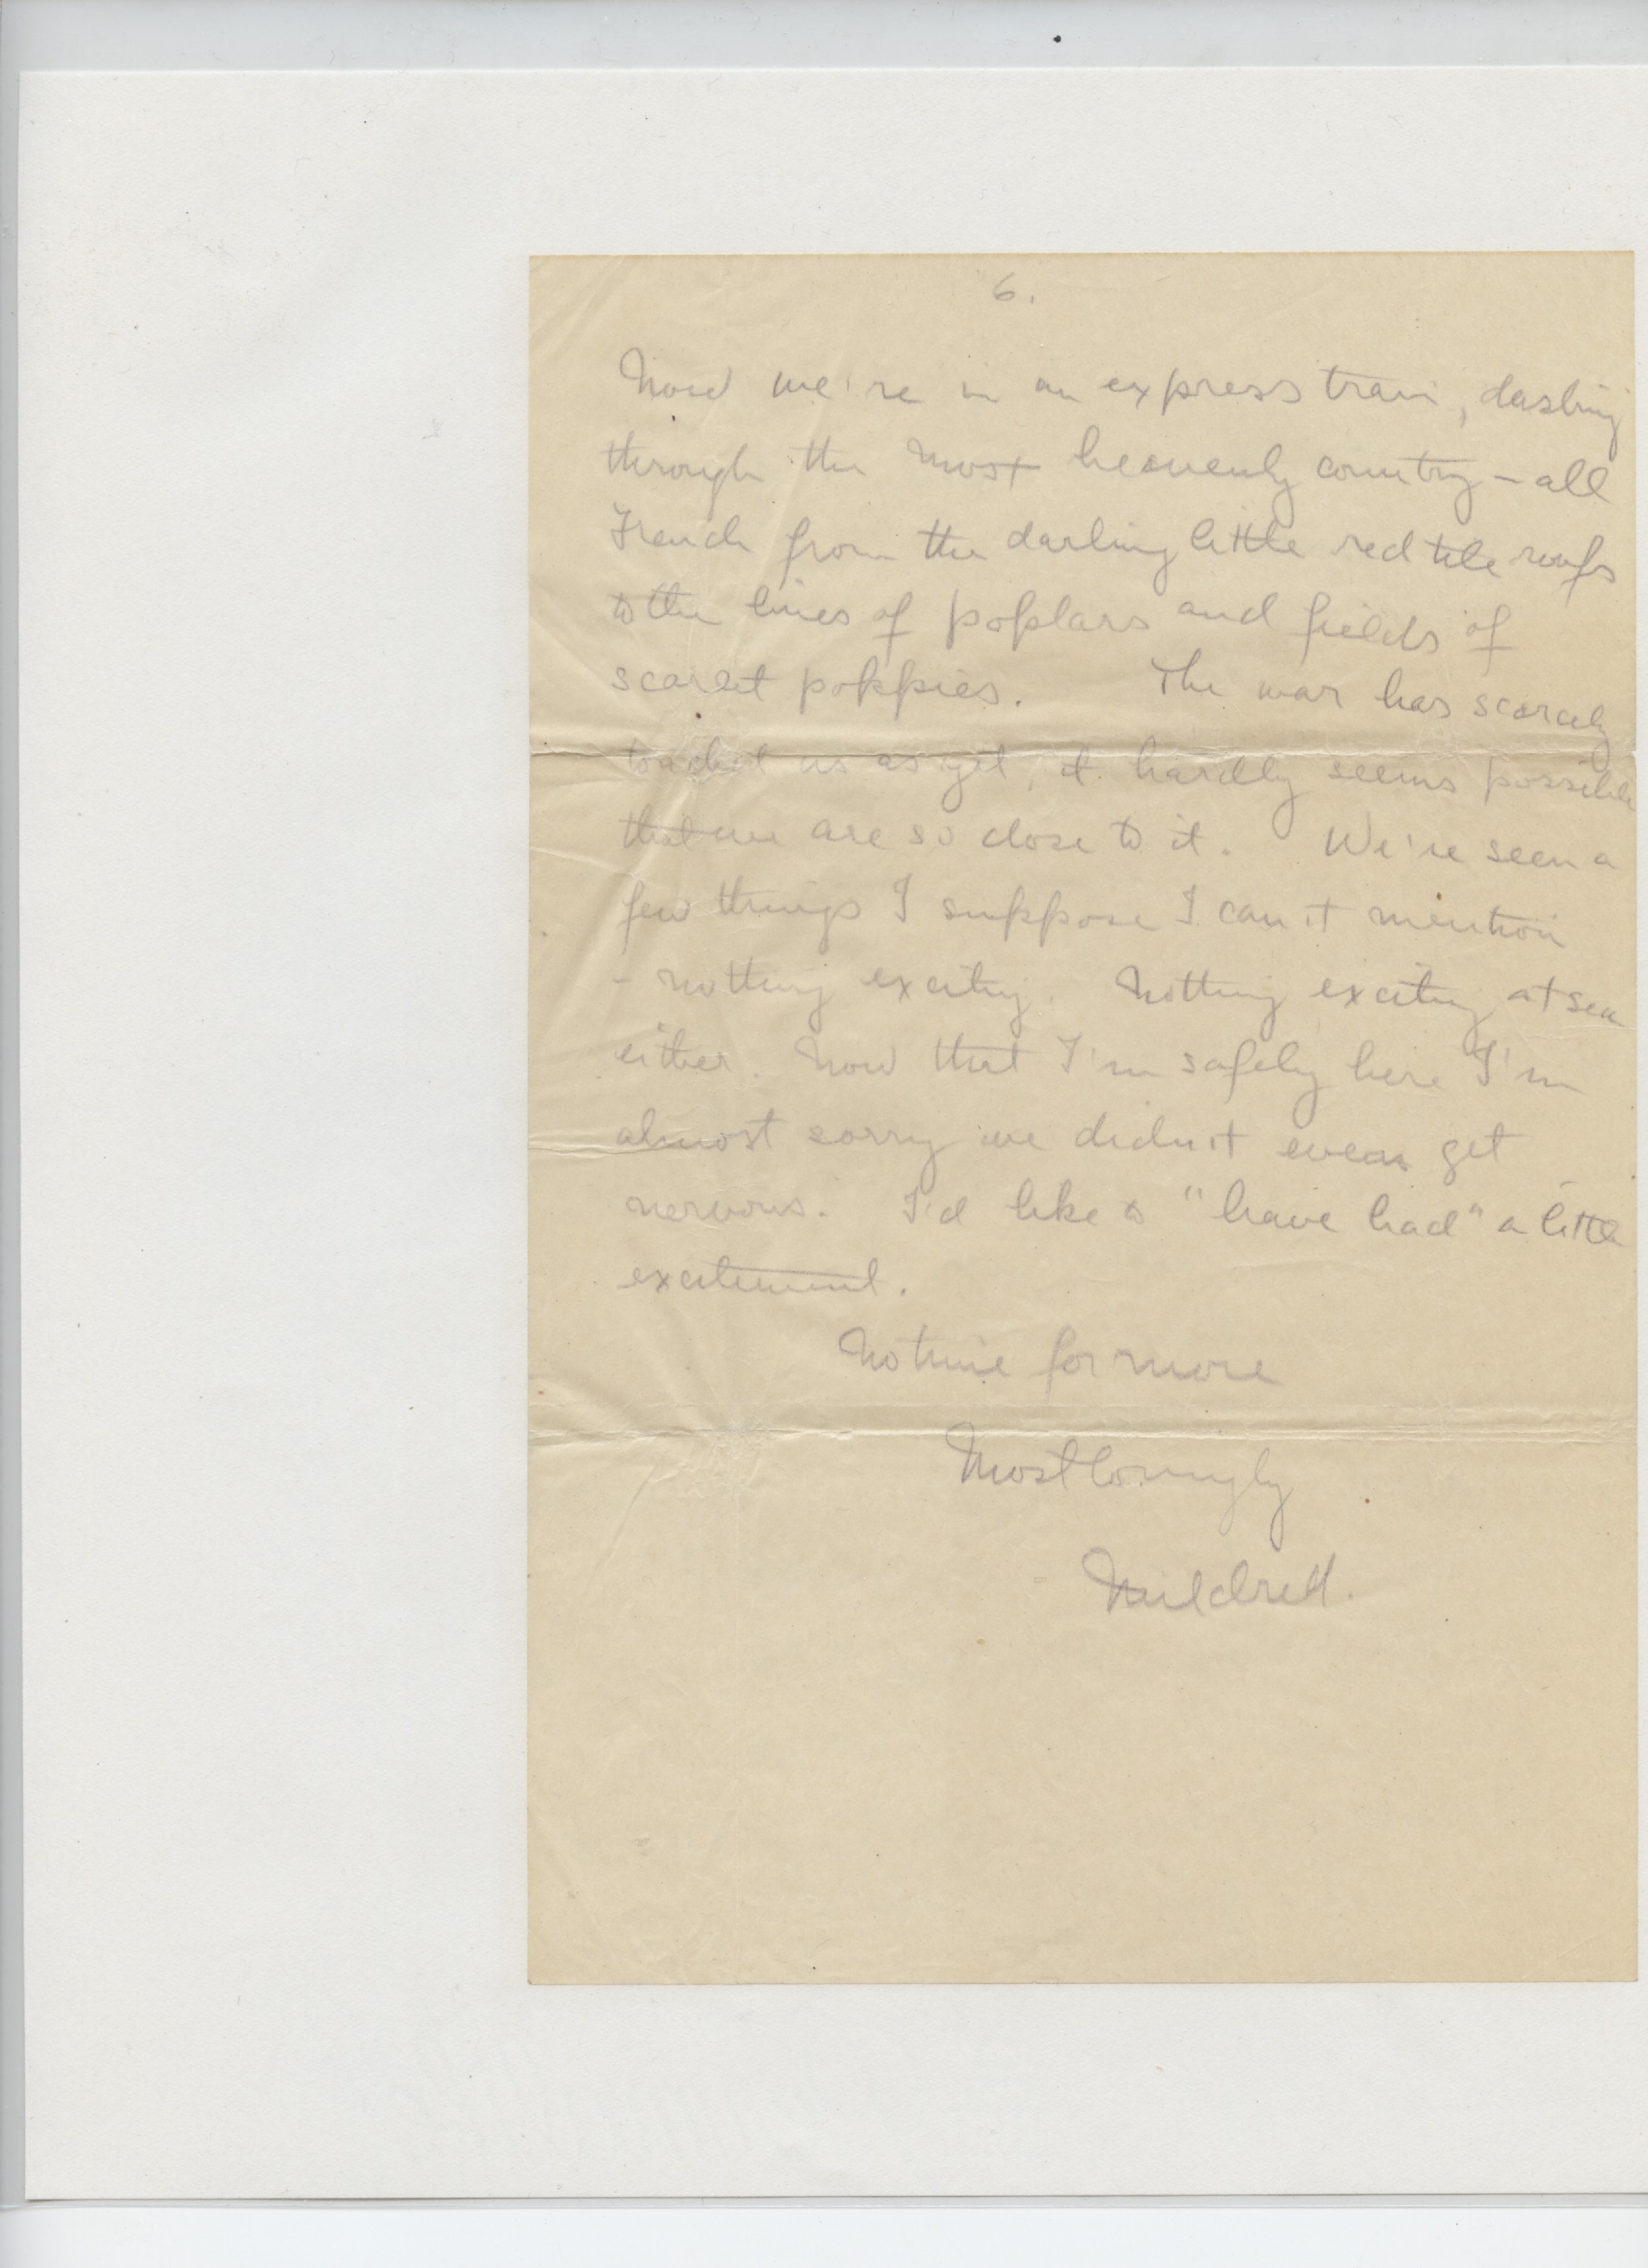 6.
Now we're in an express train, dashing
through the most heavenly country – all
French from the darling little red tile roofs
to the lines of poplars and fields of
scarlet poppies. The war has scarcely
touched us as yet, it hardly seems possible
that we are so close to it. We've seen a
few things I suppose I can't mention
– nothing exciting. Nothing exciting at sea
either. Now that I'm safely here I'm
almost sorry we didn't even get
nervous. I'd like to "have had" a little
excitement.
No time for more
Most lovingly
Mildred.